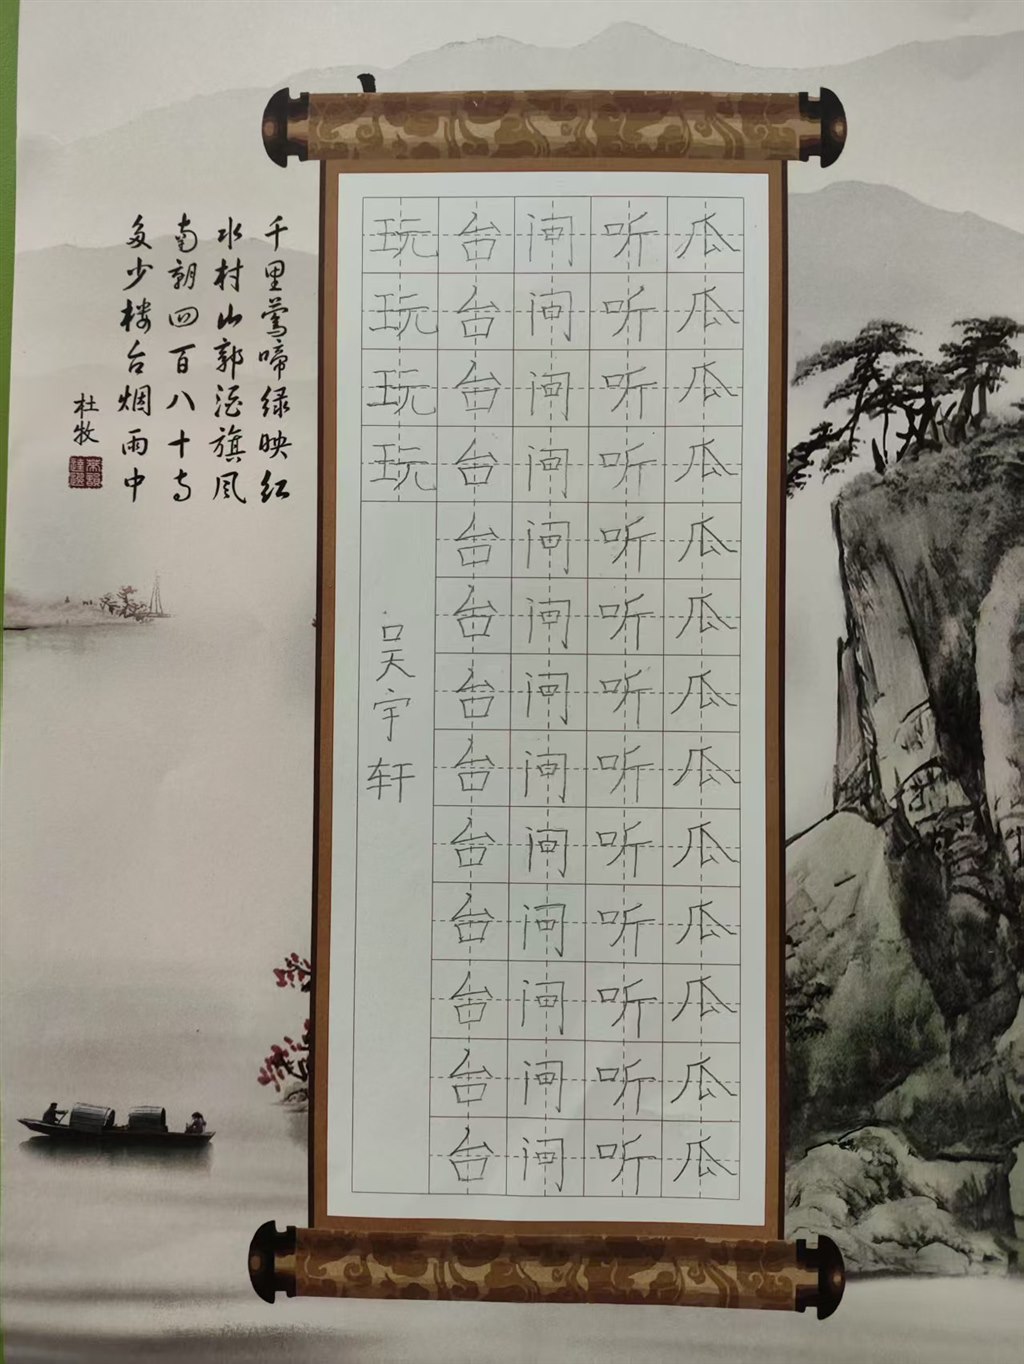 千里莺啼绿映红
水村山郭酒旗风
南朝四百八十寺
多少楼台烟雨中
杜牧
瓜瓜瓜瓜瓜瓜瓜瓜瓜瓜瓜瓜瓜
听听听听听听听听听听听听听
问问问问问问问问问问问问问
台台台台台台台台台台台台台
玩玩玩玩
吴宇轩